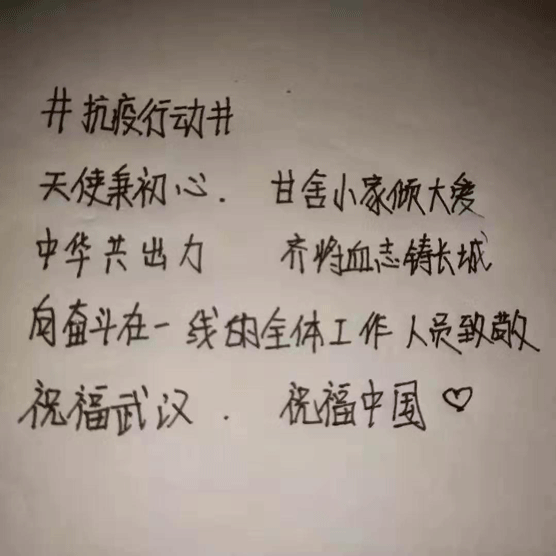 #抗疫行动#
天使秉初心. 甘舍小家倾大爱
中华共出力 齐将血志铸长城
向奋斗在一线的全体工作人员致敬
祝福武汉. 祝福中国♡